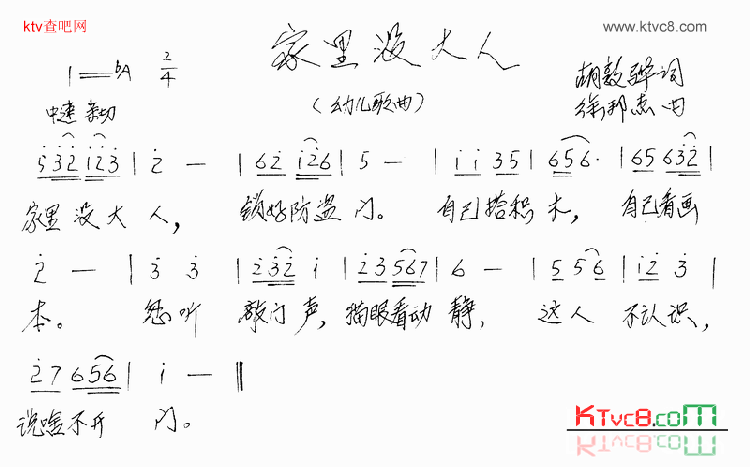 ktv查吧网
www.ktvc8.com
家里没大人
1=♭A 2/4
中速 亲切
(幼儿歌曲)
胡敦骅词
徐邦杰曲
5 3 2 1 2 3 | 2 — | 6 2 1 2 6 | 5 — | 1 1 3 5 | 6 5 6 · | 6 5 6 3 2 |
家里没大人, 锁好防盗门。 自己搭积木, 自己看画
2 — | 3 3 | 2 3 2 1 | 2 3 5 6 7 | 6 — | 5 5 6 | 1 2 3 |
本。 忽听敲门声, 猫眼看动静, 这人不认识,
2 7 6 5 6 | 1 — ‖
说啥不开门。
KTvc8.com